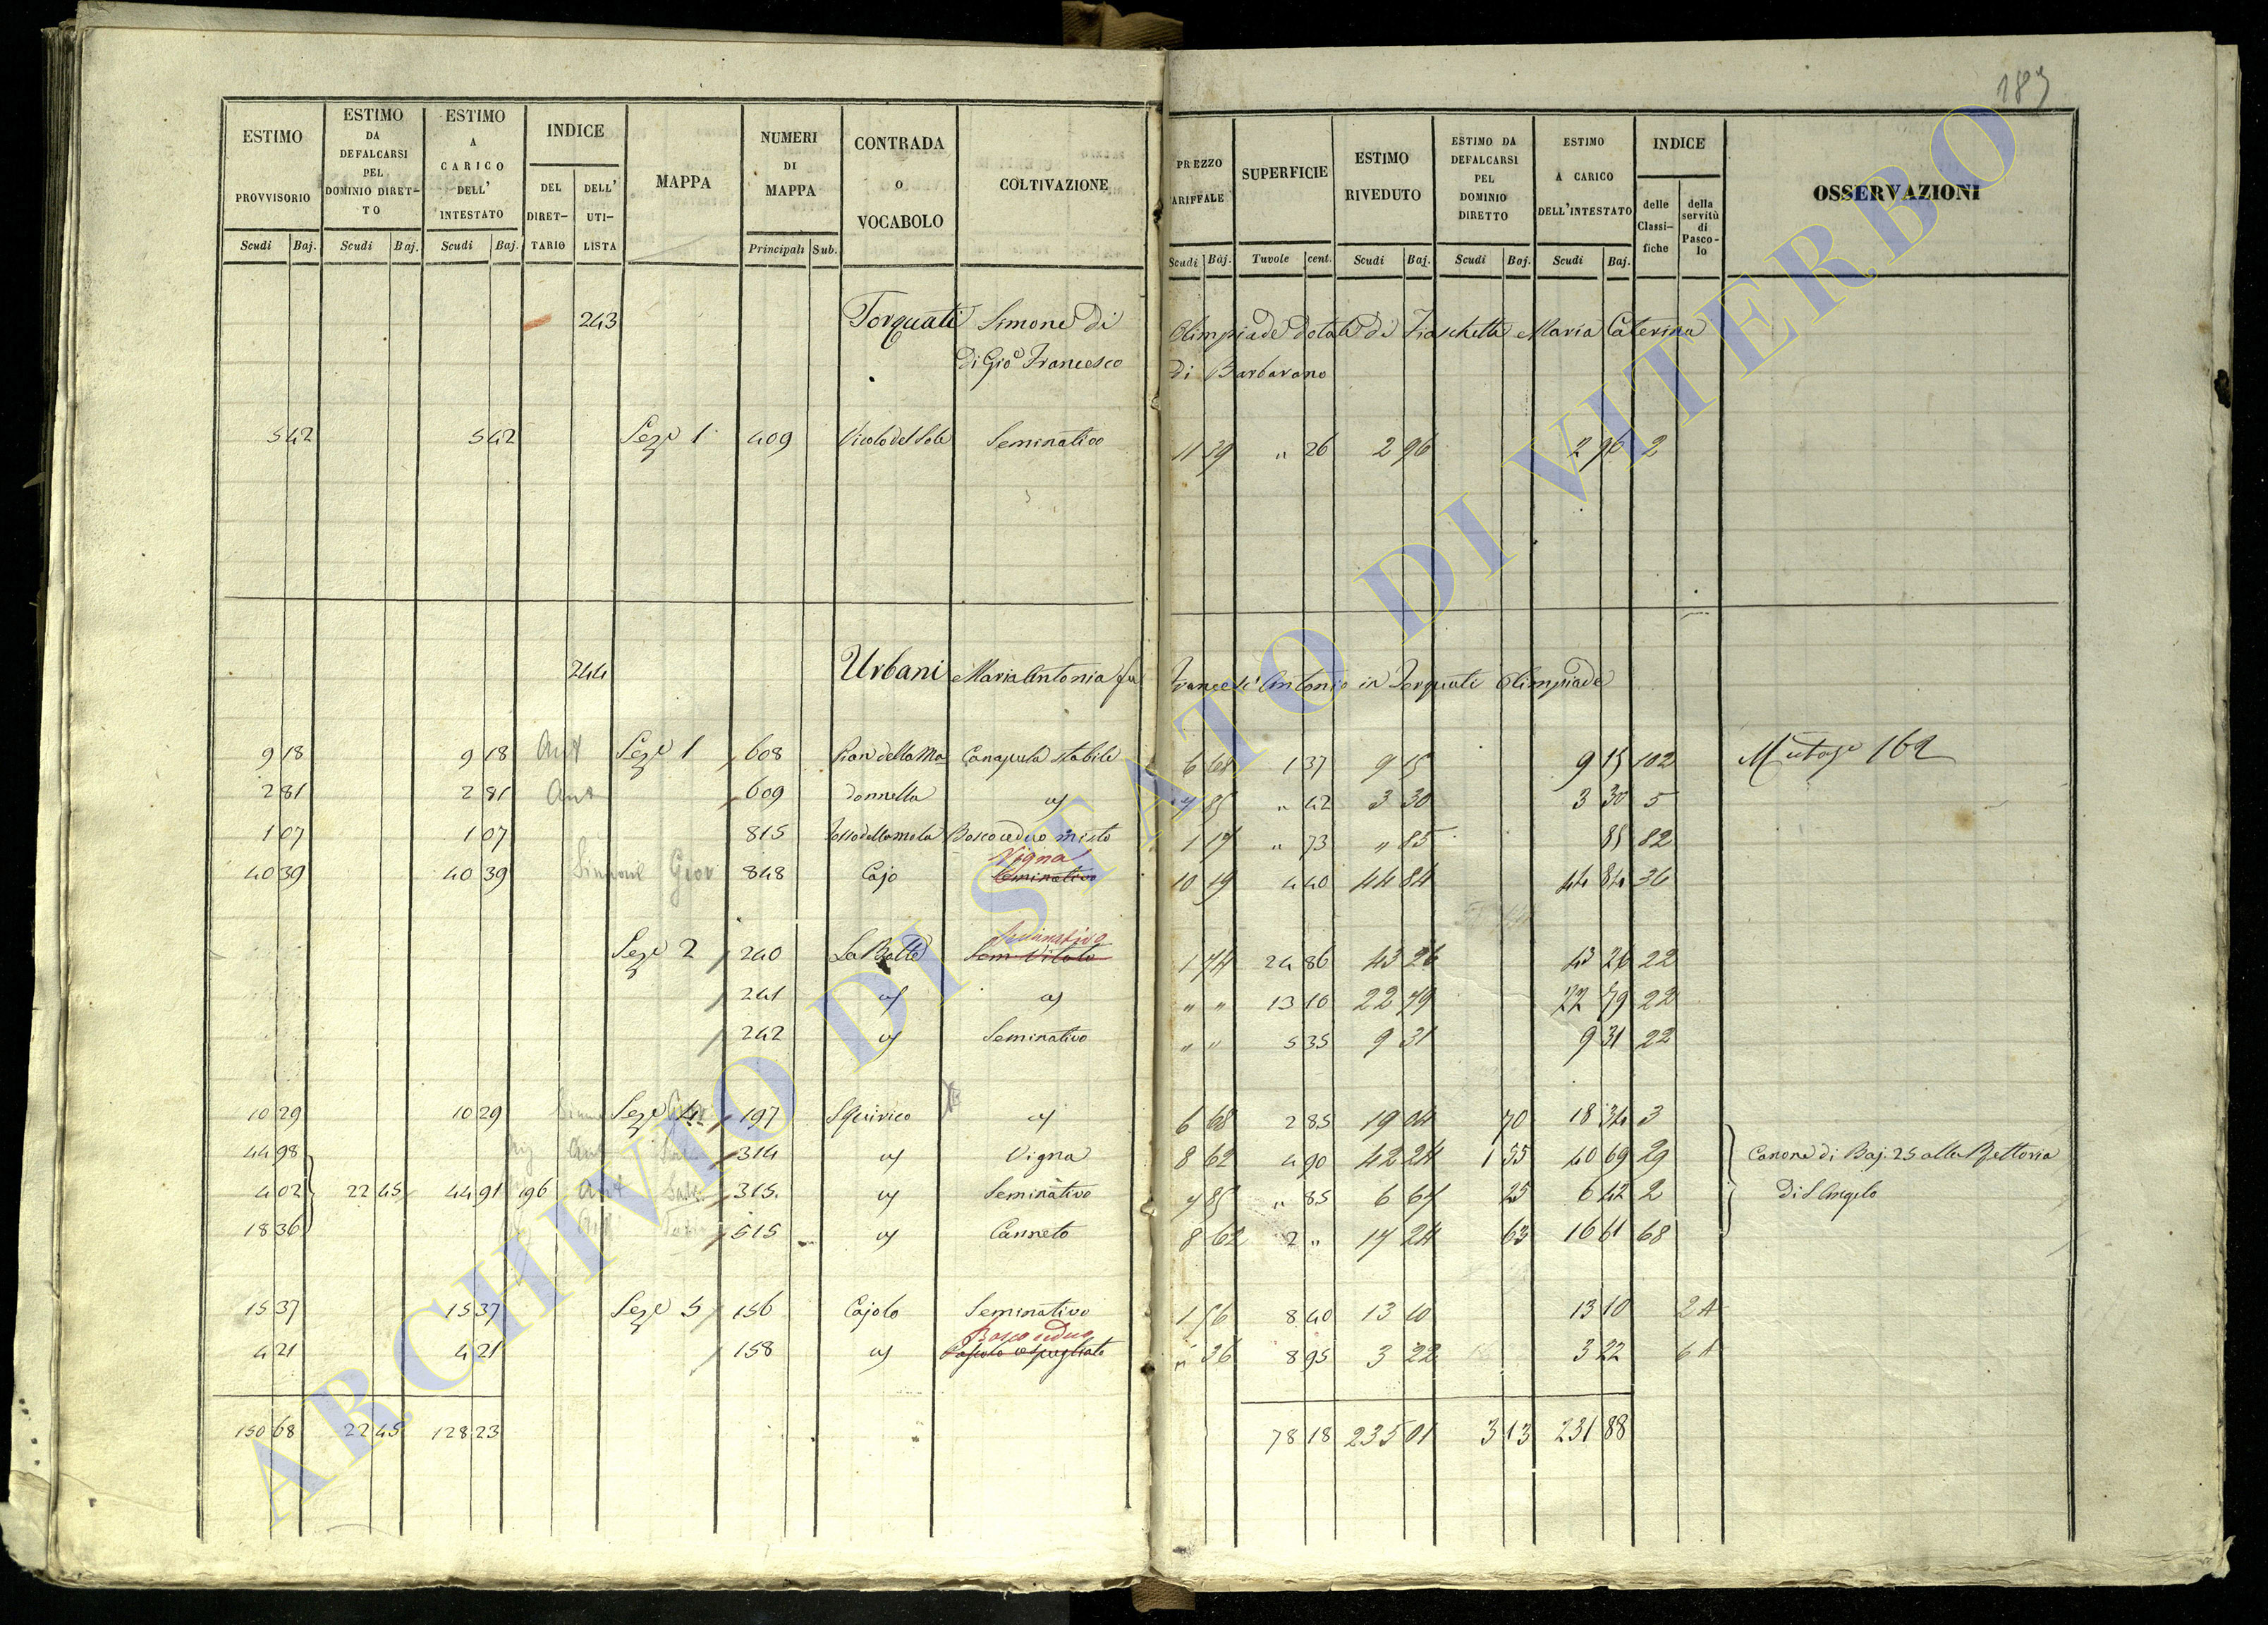 187
ESTIMO PROVVISORIO Scudi Baj. | ESTIMO DA DEFALCARSI PEL DOMINIO DIRET-TO Scudi Baj. | ESTIMO A CARICO DELL' INTESTATO Scudi Baj. | INDICE DEL DIRET-TARIO | DELL' UTI-LISTA | MAPPA | NUMERI DI MAPPA Principali Sub. | CONTRADA O VOCABOLO | COLTIVAZIONE | PREZZO ARIFFALE Scudi Baj. | SUPERFICIE Tavole cent. | ESTIMO RIVEDUTO Scudi Baj. | ESTIMO DA DEFALCARSI PEL DOMINIO DIRETTO Scudi Baj. | ESTIMO A CARICO DELL'INTESTATO Scudi Baj. | INDICE delle Classi-fiche | della servitù di Pasco-lo | OSSERVAZIONI
243 Torquati Simone di Olimpiade dotale di Fraschetti Maria Caterina
di Gio Francesco di Barbarano
5 42 5 42 Seze 1 409 Vicolo del Sole Seminativo 11 39 " 26 2 96 2 96 2
244 Urbani Maria Antonia fu Francesc' Antonio in Torquati Olimpiade
9 18 9 18 Ant Seze 1 608 Pian della Ma Canapula stabile 6 68 1 37 9 15 9 15 102 Mutaze 162
2 81 2 81 Ant 609 donnella id 7 85 " 42 3 30 3 30 5
1 07 1 07 815 Fosso della mola Bosco ceduo misto 1 17 " 73 " 85 85 82
Vigna
40 39 40 39 Giov 848 Cajo Seminativo 10 19 4 40 44 84 44 84 36
Seminativo
Seze 2 240 La Botte Sem Vitato 1 74 24 86 43 26 43 26 22
241 id id " " 13 10 22 79 22 79 22
242 id Seminativo " " 5 35 9 31 9 31 22
10 29 10 29 Seze 4 197 S Quirico id 6 68 2 85 19 04 70 18 34 3
44 98 Ant 314 id Vigna 8 62 4 90 42 24 1 55 40 69 29 Canone di Baj. 25 alla Rettoria
4 02 22 45 44 91 196 Ant 315. id Seminativo 7 85 " 85 6 67 25 6 42 2 di S Angelo
18 36 Ant 515 id Canneto 8 62 2 " 17 24 63 16 61 68
15 37 15 37 Seze 5 156 Cajolo Seminativo 1 56 8 40 13 10 13 10 2 A
Bosco ceduo
4 21 4 21 158 id Pascolo cespugliato " 36 8 95 3 22 3 22 6 A
150 68 22 45 128 23 78 18 235 01 3 13 231 88
ARCHIVIO DI STATO DI VITERBO